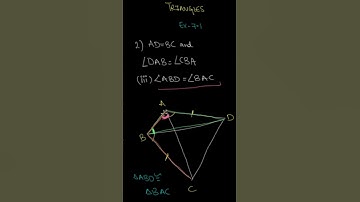 TRIANGLES
Ex-7.1
2) AD=BC and
∠DAB=∠CBA
(iii) ∠ABD=∠BAC
A
D
B
C
ΔABD≅
ΔBAC